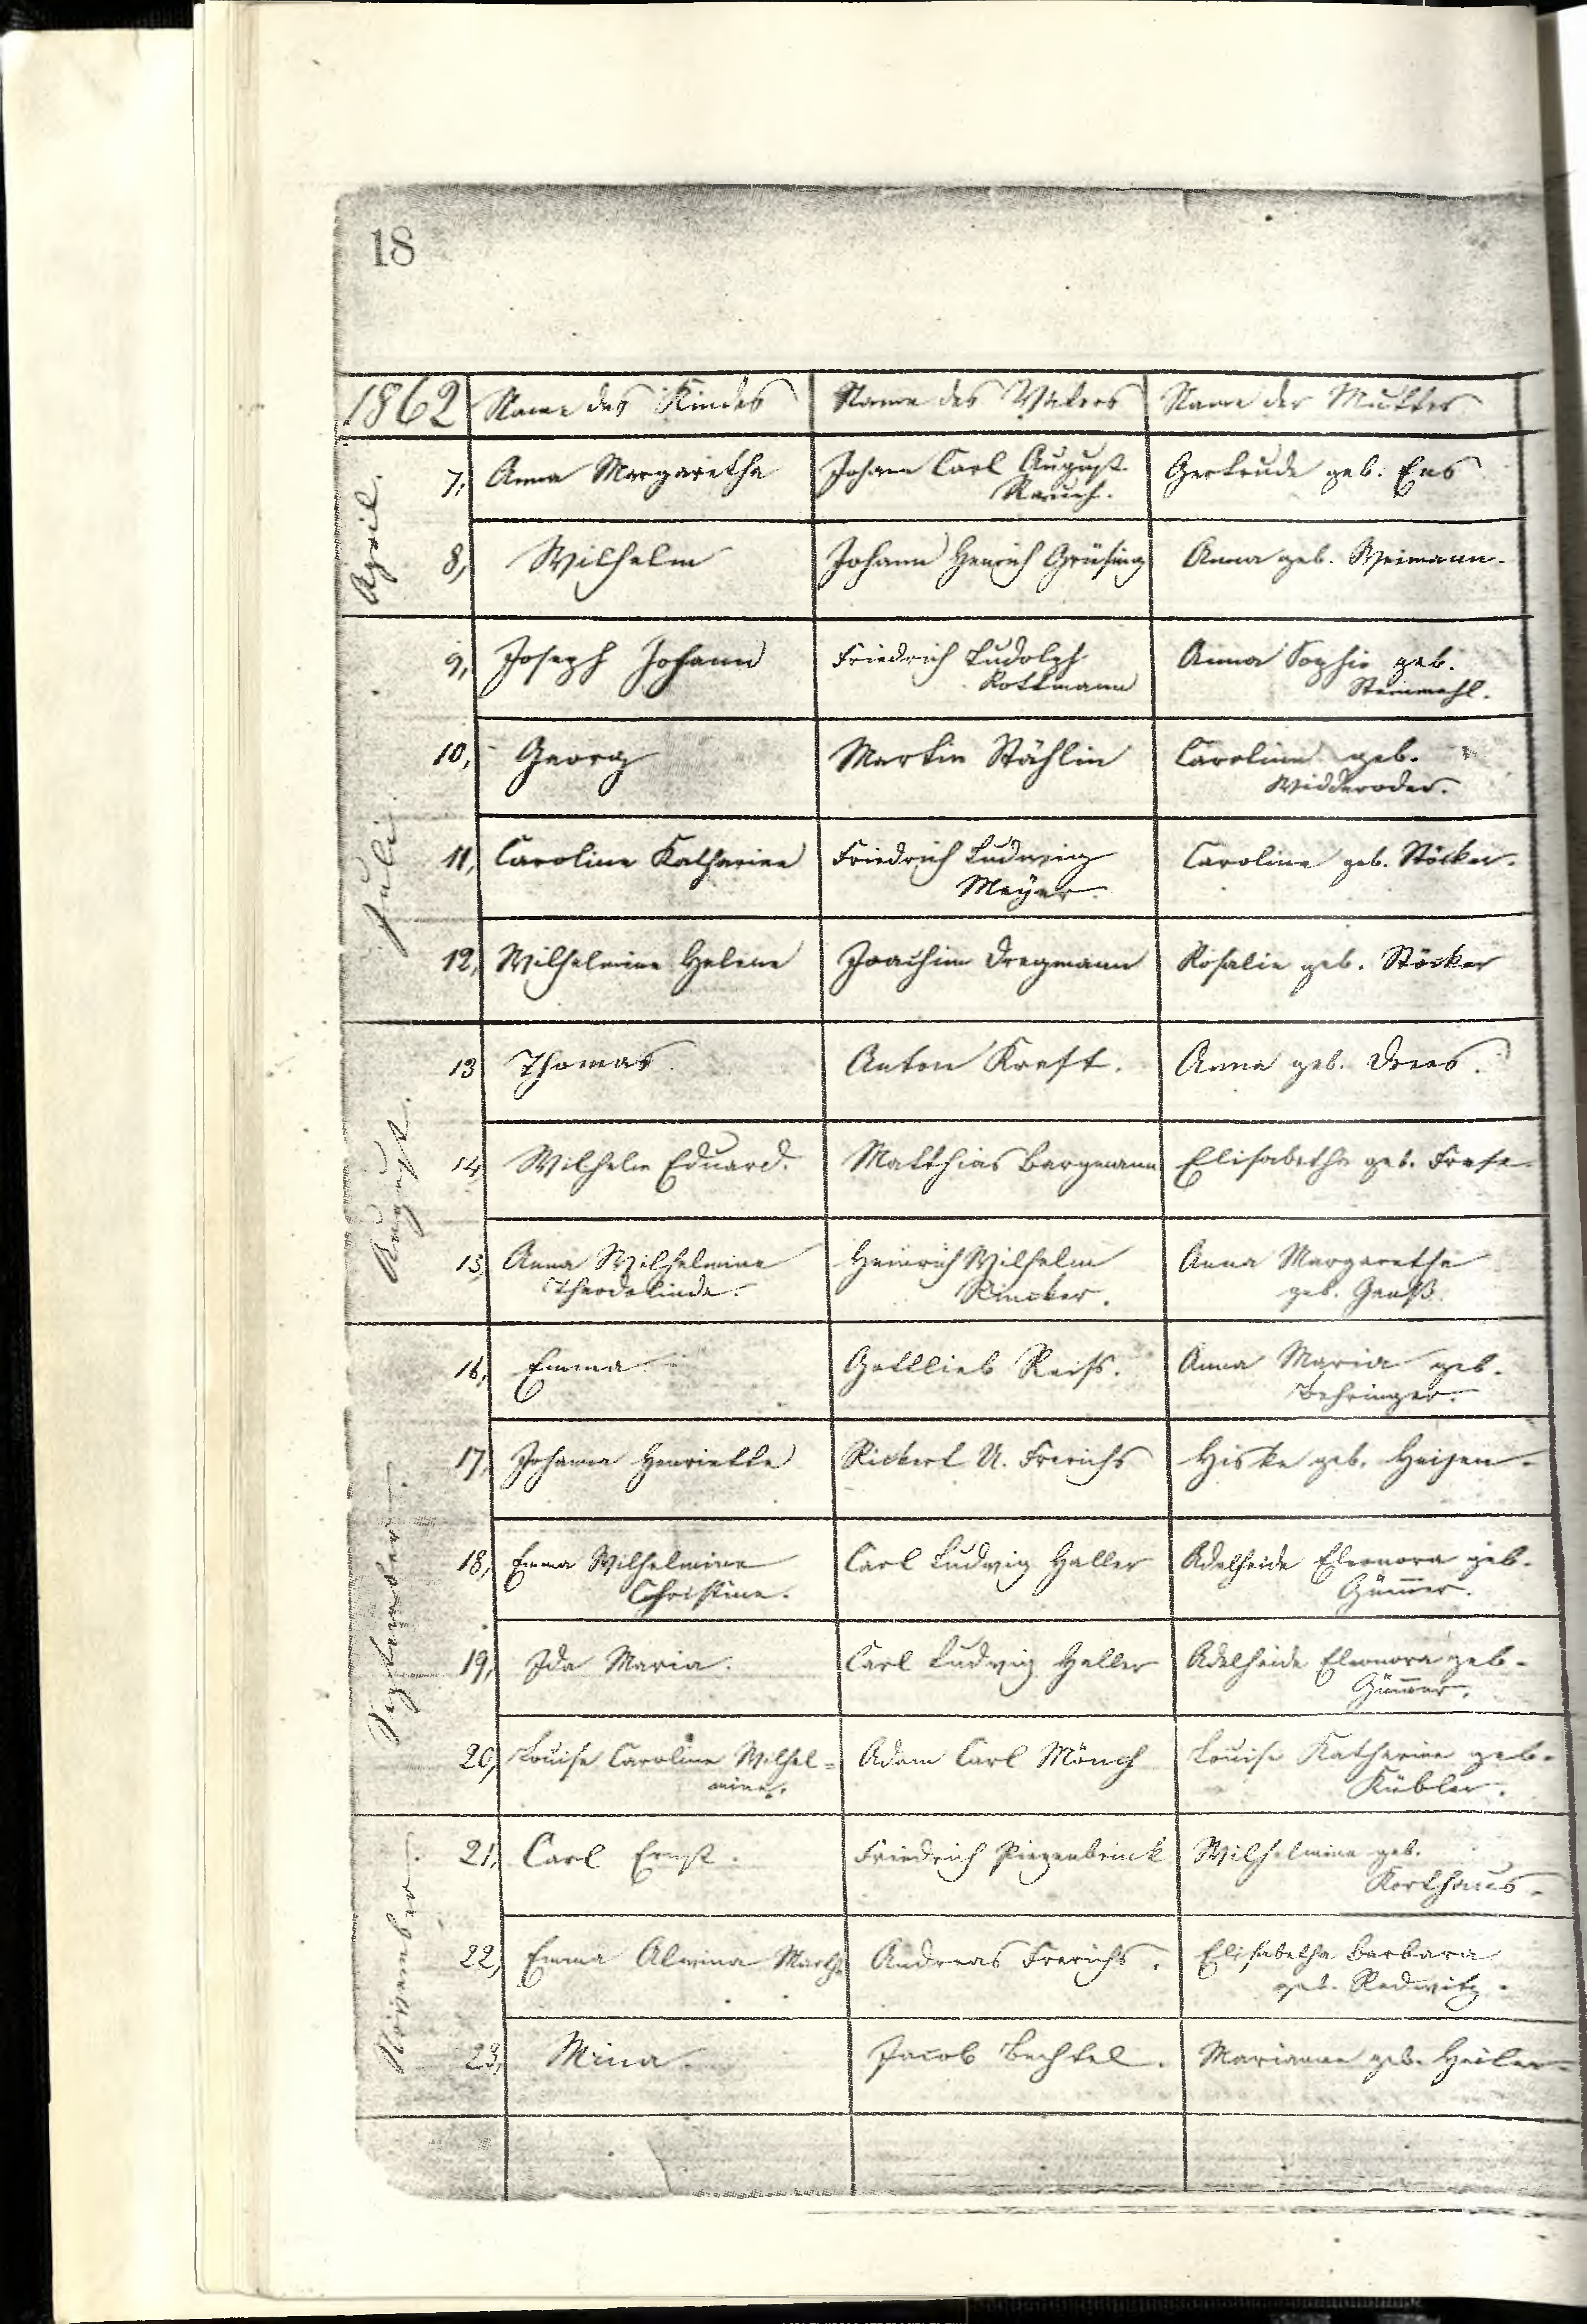 18
1862 Name des Kindes Name des Vaters Name der Mutter
April.
7, Anna Margaretha Johann Carl August Gertrude geb. Ens
Rauch.
8, Wilhelm Johann Henrich Grüsing Anna geb. Weimann.
Juli.
9, Joseph Johann Friedrich Ludolph Anna Sophie geb.
Rottmann Steinmehl.
10, Georg Martin Stählin Caroline geb.
Widderoder.
11, Caroline Katharine Friedrich Ludwig Caroline geb. Stöcker.
Meÿer.
12, Wilhelmine Helene Joachim Dregmann Rosalie geb. Stöcker
August.
13 Thomas Anton Kreft. Anna geb. Drees.
14, Wilhelm Eduard. Matthias Bargmann Elisabetha geb. Frese.
15, Anna Wilhelmine Heinrich Wilhelm Anna Margaretha
Theodolinde. Rincker. geb. Gauß.
September.
16, Emma Gottlieb Reiss. Anna Maria geb.
Behringer.
17, Johanna Henriette Rickert U. Frerichs Hiske geb. Heijen.
18, Emma Wilhelmine Carl Ludwig Haller Adelheide Eleonora geb.
Christine. Güm̅er.
19, Ida Maria. Carl Ludwig Haller Adelheide Eleonora geb.
Güm̅er.
20, Louise Caroline Wilhel= Adam Carl Mönch Louise Katharine geb.
mine. Kübler.
November.
21, Carl Ernst. Friedrich Piezenbrinck Wilhelmine geb.
Korthaus.
22, Emma Alwina Martha Andreas Frerichs. Elisabetha Barbara
geb. Redwitz.
23, Mina. Jacob Bechtel. Marianne geb. Heiler